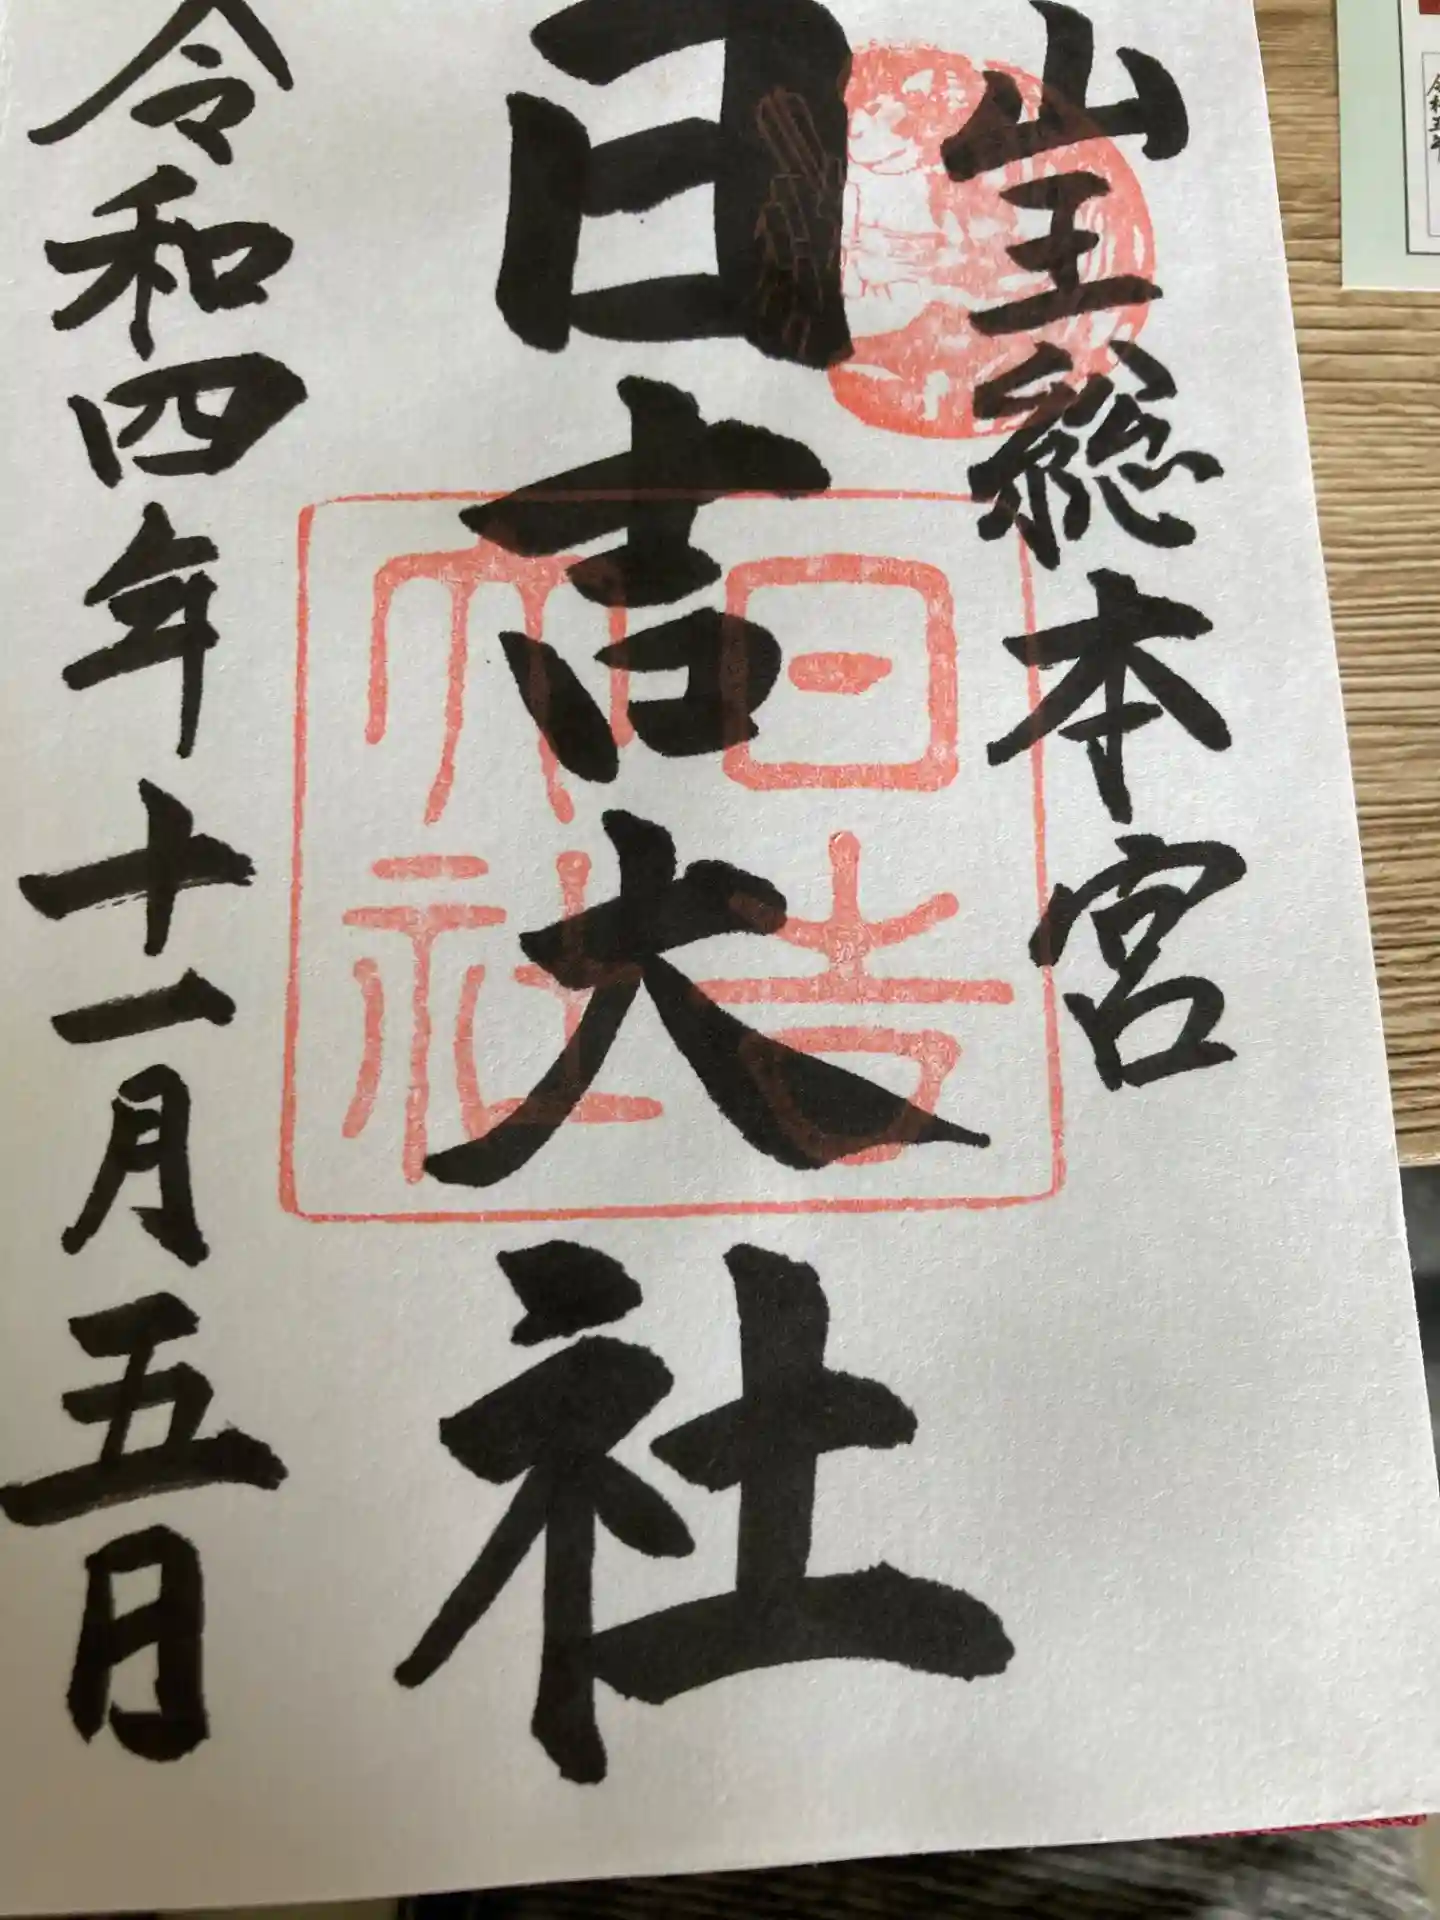 山王総本宮
日吉大社
令和四年十一月五日
日吉
大社
令和五年